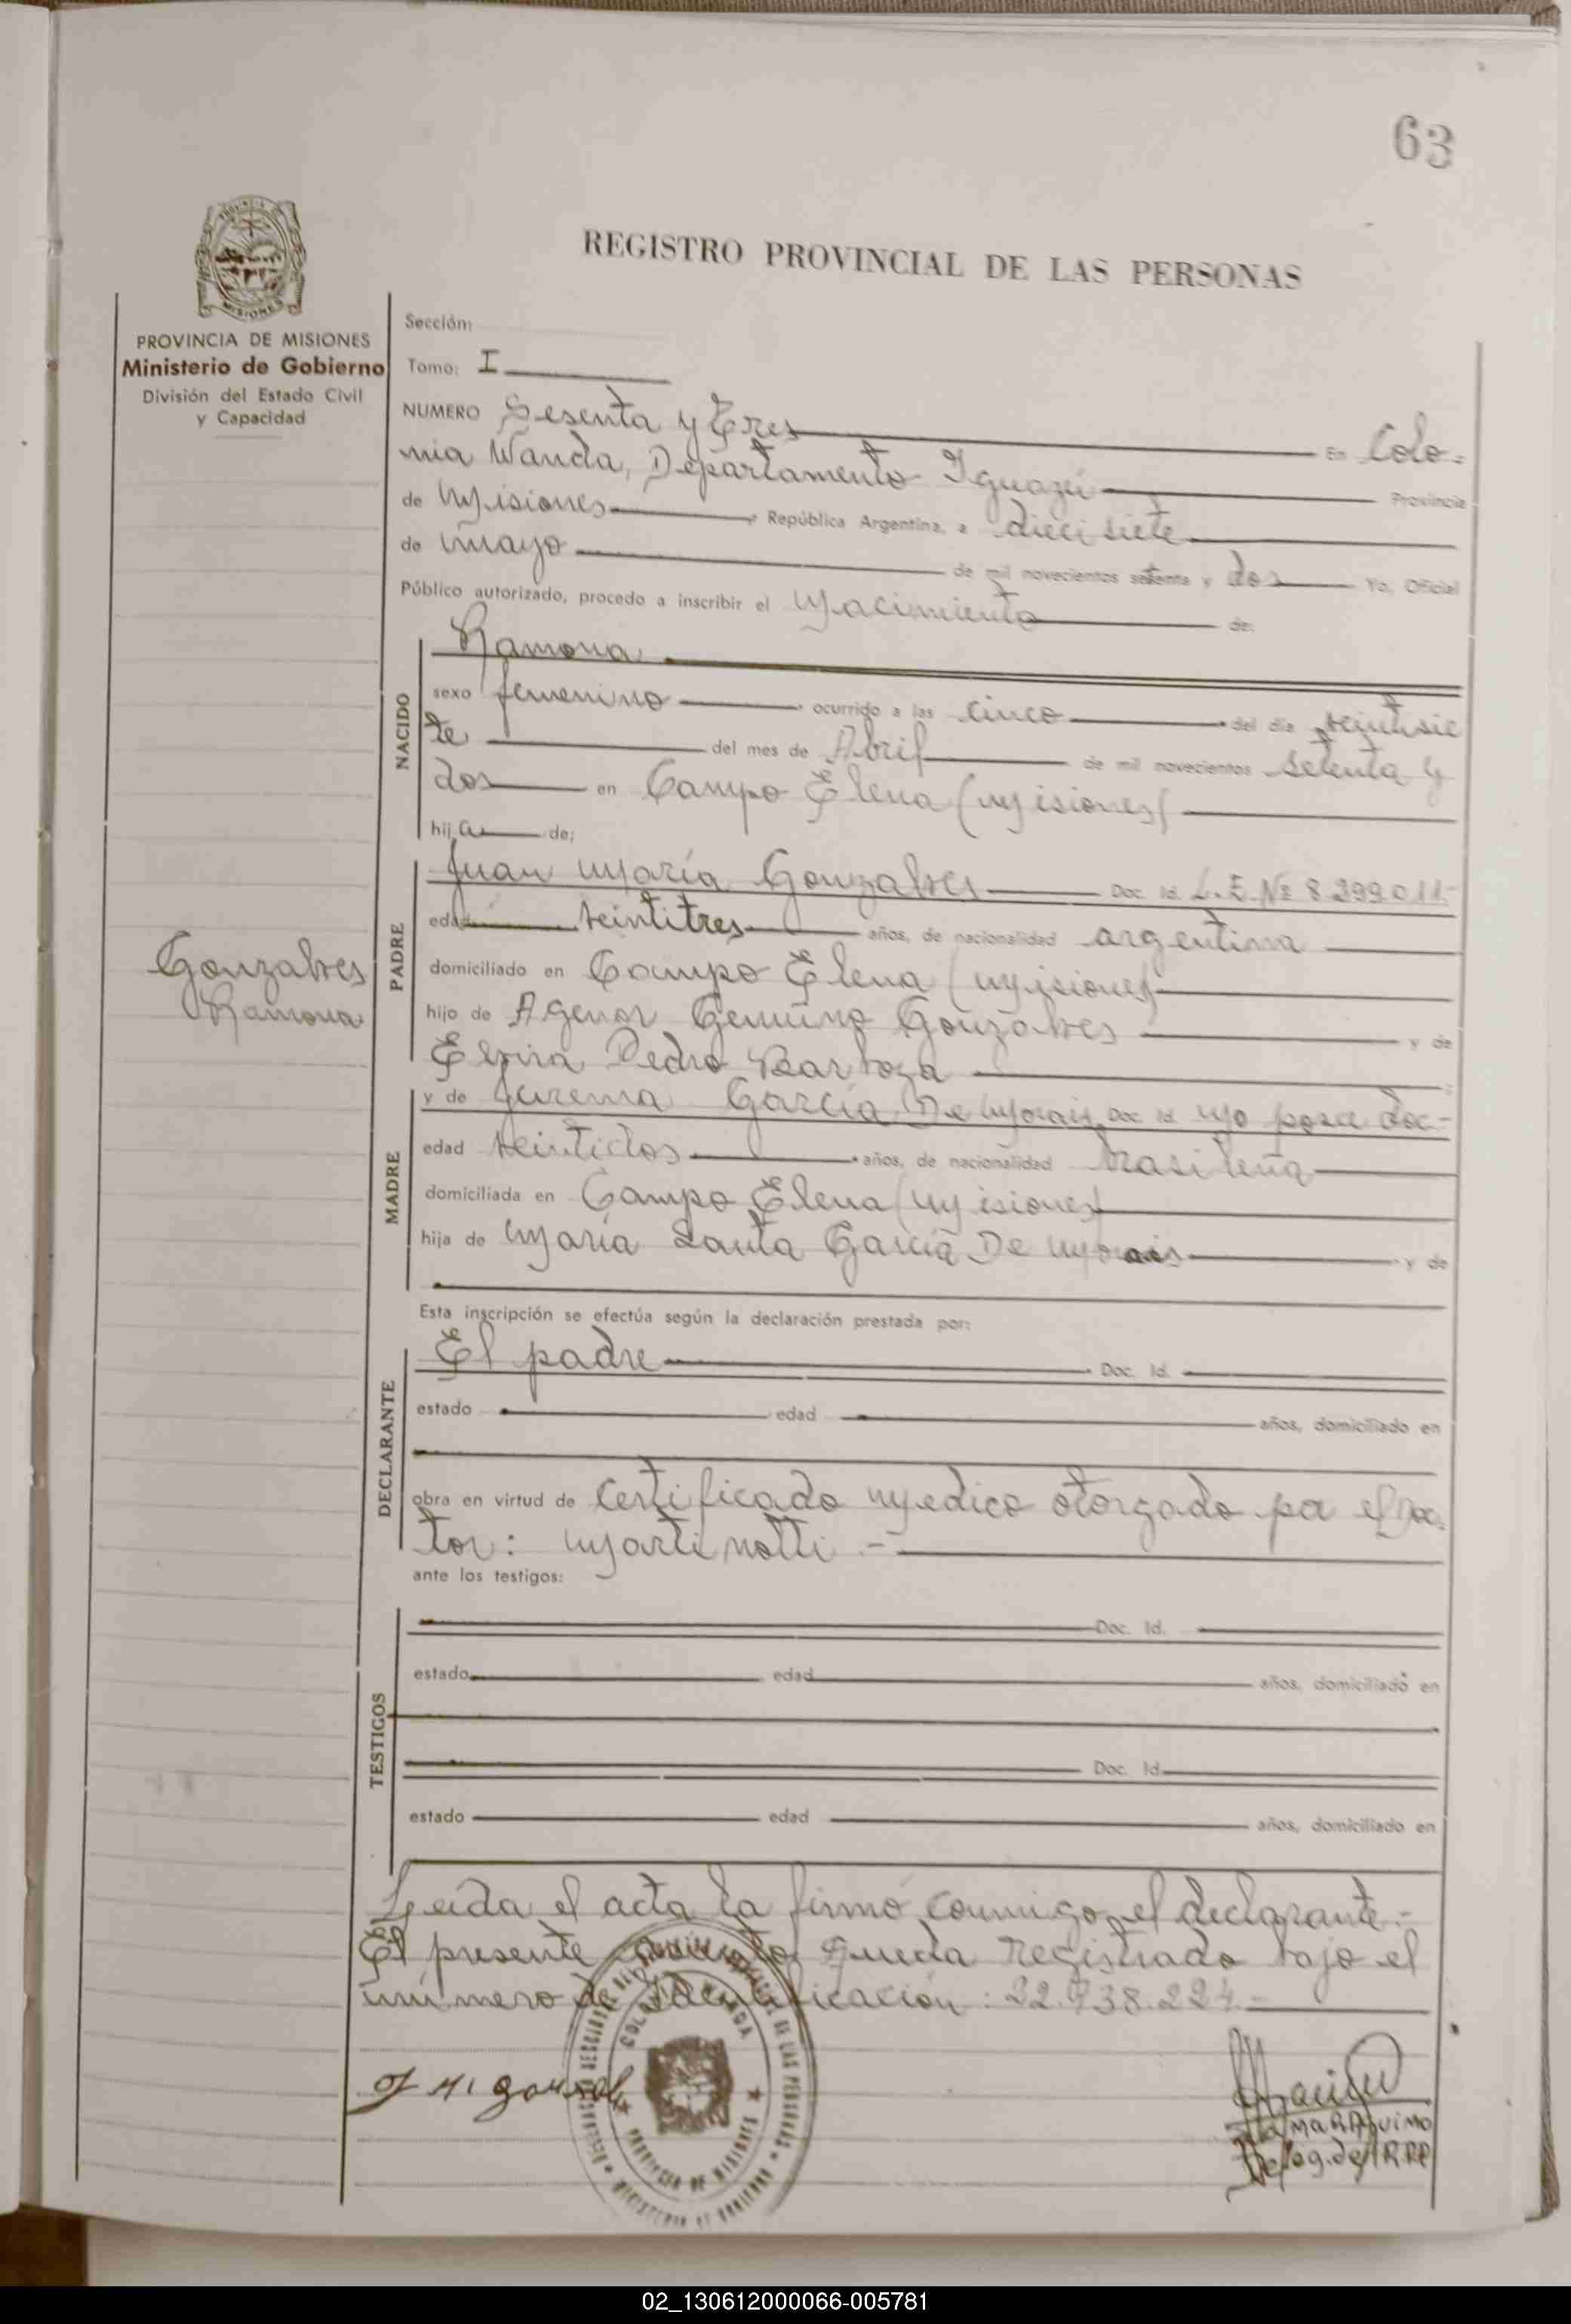 63
REGISTRO PROVINCIAL DE LAS PERSONAS
MISIONES
PROVINCIA DE MISIONES
Ministerio de Gobierno
División del Estado Civil
y Capacidad
Sección:
Tomo: I
NUMERO Sesenta y Tres En Colo-
nia Wanda, Departamento Iguazú Provincia
de Misiones, República Argentina, a diecisiete
de mayo de mil novecientos setenta y dos Yo, Oficial
Público autorizado, procedo a inscribir el Nacimiento de:
NACIDO
Ramona
sexo femenino ocurrido a las cinco del día veintisie
te del mes de Abril de mil novecientos setenta y
dos en Campo Elena (Misiones)
hija de:
Gonzalves
Ramona
PADRE
Juan María Gonzalves Doc. Id. L.E. Nº 8.399.011.-
edad veintitres años, de nacionalidad argentina
domiciliado en Campo Elena (Misiones)
hijo de Agenor Genuino Gonzalves y de
Elvira Pedro Barboza
MADRE
y de Jurema García De Morais Doc. Id. No posee doc-
edad veintidos años, de nacionalidad brasileña
domiciliada en Campo Elena (Misiones)
hija de María Santa García De Morais y de
Esta inscripción se efectúa según la declaración prestada por:
DECLARANTE
El padre Doc. Id.
estado edad años, domiciliado en
obra en virtud de Certificado Medico otorgado por el Doc-
tor: Martinotti.-
ante los testigos:
TESTIGOS
Doc. Id.
estado edad años, domiciliado en
Doc. Id.
estado edad años, domiciliado en
Leída el acta la firmó conmigo el declarante.-
El presente queda registrado bajo el
número de Identificación: 22.738.224.-
COLONIA WANDA
PROVINCIA DE MISIONES
Deleg. del R.P.P.
02_130612000066-005781